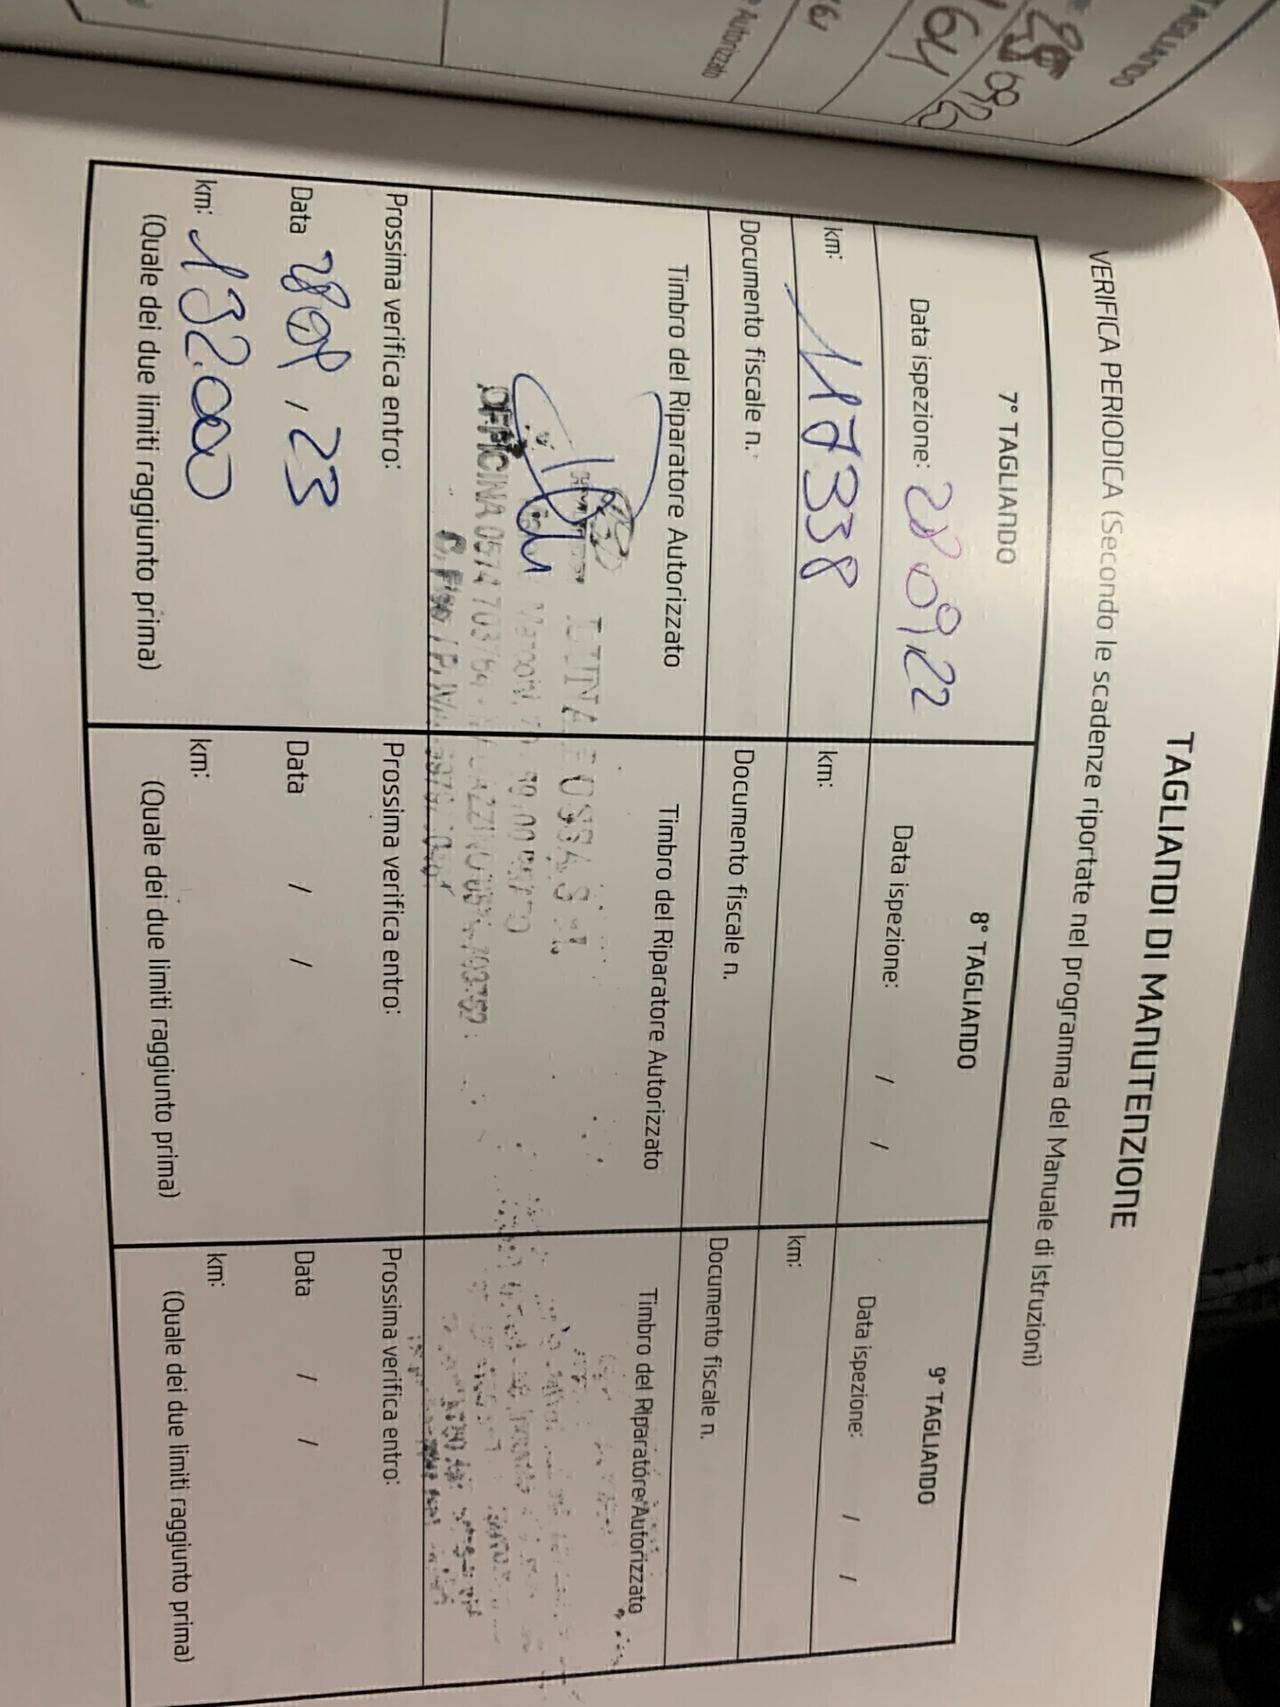 TAGLIANDO
Autorizzato
TAGLIANDI DI MANUTENZIONE
VERIFICA PERIODICA (Secondo le scadenze riportate nel programma del Manuale di Istruzioni)
7° TAGLIANDO
Data ispezione: 28 09 22
km: 117338
Documento fiscale n.
Timbro del Riparatore Autorizzato
OFFICINA 0574 703759
Prossima verifica entro:
Data 28 09 / 23
km: 132.000
(Quale dei due limiti raggiunto prima)
8° TAGLIANDO
Data ispezione: / /
km:
Documento fiscale n.
Timbro del Riparatore Autorizzato
Prossima verifica entro:
Data / /
km:
(Quale dei due limiti raggiunto prima)
9° TAGLIANDO
Data ispezione: / /
km:
Documento fiscale n.
Timbro del Riparatore Autorizzato
Prossima verifica entro:
Data / /
km:
(Quale dei due limiti raggiunto prima)